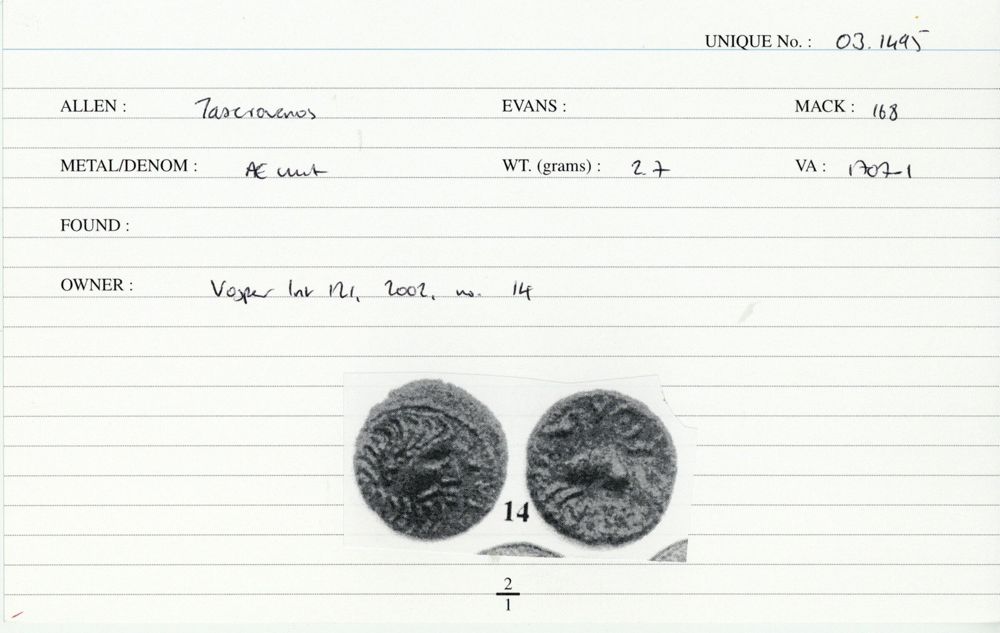 UNIQUE No. : 03.1495
ALLEN : Tasciovanos EVANS : MACK : 168
METAL/DENOM : Æ unit WT. (grams) : 2.7 VA : 1707-1
FOUND :
OWNER : Vosper list 121, 2002, no. 14
14
2
1